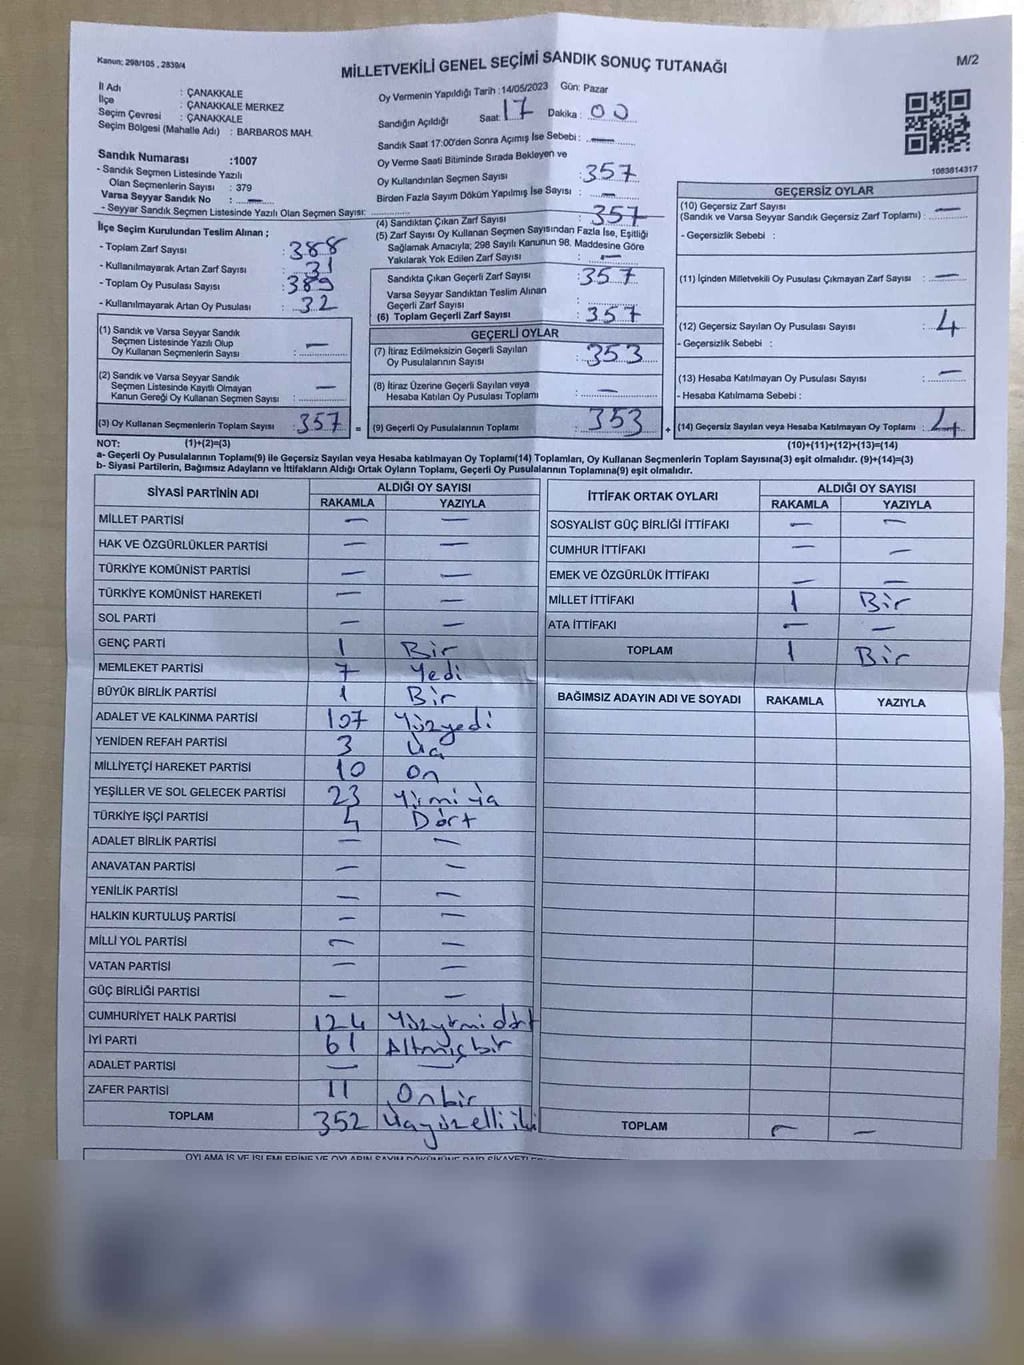 Kanun; 298/105 , 2839/4
MİLLETVEKİLİ GENEL SEÇİMİ SANDIK SONUÇ TUTANAĞI
M/2
İl Adı : ÇANAKKALE
İlçe : ÇANAKKALE MERKEZ
Seçim Çevresi : ÇANAKKALE
Seçim Bölgesi (Mahalle Adı) : BARBAROS MAH.
Sandık Numarası :1007
- Sandık Seçmen Listesinde Yazılı
Olan Seçmenlerin Sayısı : 379
Varsa Seyyar Sandık No : —
- Seyyar Sandık Seçmen Listesinde Yazılı Olan Seçmen Sayısı: ............
Oy Vermenin Yapıldığı Tarih :14/05/2023 Gün: Pazar
Sandığın Açıldığı Saat: 17 Dakika : 00
Sandık Saat 17:00'den Sonra Açımış İse Sebebi : —
Oy Verme Saati Bitiminde Sırada Bekleyen ve
Oy Kullandırılan Seçmen Sayısı : 357
Birden Fazla Sayım Döküm Yapılmış İse Sayısı : —
1083814317
İlçe Seçim Kurulundan Teslim Alınan ;
- Toplam Zarf Sayısı : 388
- Kullanılmayarak Artan Zarf Sayısı : 31
- Toplam Oy Pusulası Sayısı : 389
- Kullanılmayarak Artan Oy Pusulası : 32
(1) Sandık ve Varsa Seyyar Sandık
Seçmen Listesinde Yazılı Olup
Oy Kullanan Seçmenlerin Sayısı : —
(2) Sandık ve Varsa Seyyar Sandık
Seçmen Listesinde Kayıtlı Olmayan
Kanun Gereği Oy Kullanan Seçmen Sayısı : —
(3) Oy Kullanan Seçmenlerin Toplam Sayısı : 357 =
(4) Sandıktan Çıkan Zarf Sayısı : 357
(5) Zarf Sayısı Oy Kullanan Seçmen Sayısından Fazla İse, Eşitliği
Sağlamak Amacıyla; 298 Sayılı Kanunun 98. Maddesine Göre
Yakılarak Yok Edilen Zarf Sayısı : —
Sandıkta Çıkan Geçerli Zarf Sayısı : 357
Varsa Seyyar Sandıktan Teslim Alınan
Geçerli Zarf Sayısı : ............
(6) Toplam Geçerli Zarf Sayısı : 357
GEÇERLİ OYLAR
(7) İtiraz Edilmeksizin Geçerli Sayılan
Oy Pusulalarının Sayısı : 353
(8) İtiraz Üzerine Geçerli Sayılan veya
Hesaba Katılan Oy Pusulası Toplamı : —
(9) Geçerli Oy Pusulalarının Toplamı : 353 +
GEÇERSİZ OYLAR
(10) Geçersiz Zarf Sayısı
(Sandık ve Varsa Seyyar Sandık Geçersiz Zarf Toplamı) : —
- Geçersizlik Sebebi :
(11) İçinden Milletvekili Oy Pusulası Çıkmayan Zarf Sayısı : —
(12) Geçersiz Sayılan Oy Pusulası Sayısı : 4
- Geçersizlik Sebebi :
(13) Hesaba Katılmayan Oy Pusulası Sayısı : —
- Hesaba Katılmama Sebebi :
(14) Geçersiz Sayılan veya Hesaba Katılmayan Oy Toplamı : 4
NOT: (1)+(2)=(3)
(10)+(11)+(12)+(13)=(14)
a- Geçerli Oy Pusulalarının Toplamı(9) ile Geçersiz Sayılan veya Hesaba katılmayan Oy Toplamı(14) Toplamları, Oy Kullanan Seçmenlerin Toplam Sayısına(3) eşit olmalıdır. (9)+(14)=(3)
b- Siyasi Partilerin, Bağımsız Adayların ve İttifakların Aldığı Ortak Oyların Toplamı, Geçerli Oy Pusulalarının Toplamına(9) eşit olmalıdır.
SİYASİ PARTİNİN ADI ALDIĞI OY SAYISI
RAKAMLA YAZIYLA
MİLLET PARTİSİ — —
HAK VE ÖZGÜRLÜKLER PARTİSİ — —
TÜRKİYE KOMÜNİST PARTİSİ — —
TÜRKİYE KOMÜNİST HAREKETİ — —
SOL PARTİ — —
GENÇ PARTİ 1 Bir
MEMLEKET PARTİSİ 7 Yedi
BÜYÜK BİRLİK PARTİSİ 1 Bir
ADALET VE KALKINMA PARTİSİ 107 Yüzyedi
YENİDEN REFAH PARTİSİ 3 Üç
MİLLİYETÇİ HAREKET PARTİSİ 10 On
YEŞİLLER VE SOL GELECEK PARTİSİ 23 Yirmi üç
TÜRKİYE İŞÇİ PARTİSİ 4 Dört
ADALET BİRLİK PARTİSİ — —
ANAVATAN PARTİSİ — —
YENİLİK PARTİSİ — —
HALKIN KURTULUŞ PARTİSİ — —
MİLLİ YOL PARTİSİ — —
VATAN PARTİSİ — —
GÜÇ BİRLİĞİ PARTİSİ — —
CUMHURİYET HALK PARTİSİ 124 Yüzyirmi dört
İYİ PARTİ 61 Altmış bir
ADALET PARTİSİ — —
ZAFER PARTİSİ 11 Onbir
TOPLAM 352 Üçyüzelli iki
İTTİFAK ORTAK OYLARI ALDIĞI OY SAYISI
RAKAMLA YAZIYLA
SOSYALİST GÜÇ BİRLİĞİ İTTİFAKI — —
CUMHUR İTTİFAKI — —
EMEK VE ÖZGÜRLÜK İTTİFAKI — —
MİLLET İTTİFAKI 1 Bir
ATA İTTİFAKI — —
TOPLAM 1 Bir
BAĞIMSIZ ADAYIN ADI VE SOYADI RAKAMLA YAZIYLA
TOPLAM — —